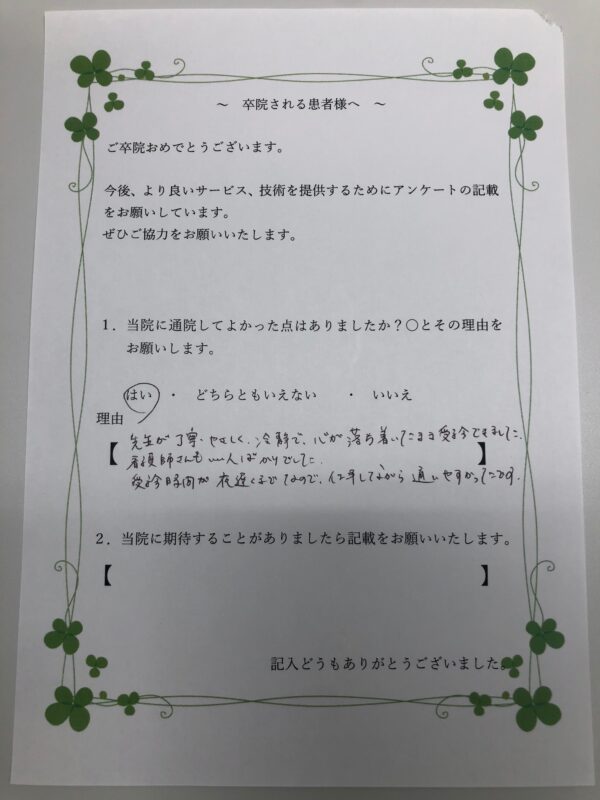 ～ 卒院される患者様へ ～
ご卒院おめでとうございます。
今後、より良いサービス、技術を提供するためにアンケートの記載
をお願いしています。
ぜひご協力をお願いいたします。
1．当院に通院してよかった点はありましたか？〇とその理由を
お願いします。
はい ・ どちらともいえない ・ いいえ
理由
【 先生が丁寧、やさしく、冷静で、心が落ち着いたまま受診できました。
看護師さんもいい人ばかりでした。 】
受診時間が夜遅くまでなので、仕事しながら通いやすかったです。
2．当院に期待することがありましたら記載をお願いいたします。
【 】
記入どうもありがとうございました。